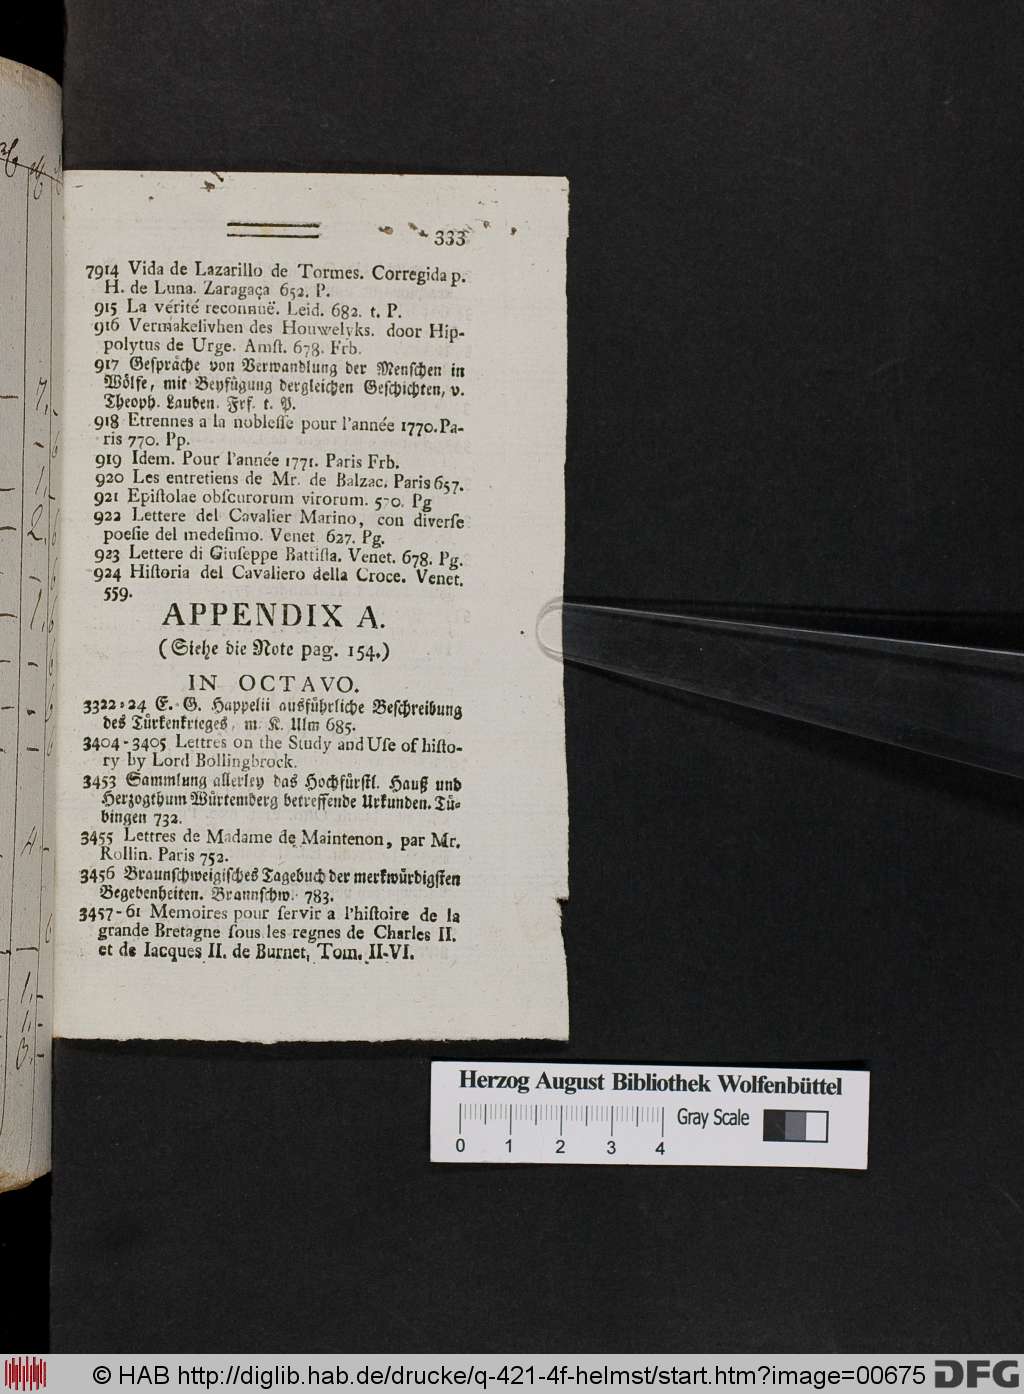 333
7914 Vida de Lazarillo de Tormes. Corregida p.
H. de Luna. Zaragaça 652. P.
915 La vérité reconnuë. Leid. 682. t. P.
916 Vermakelivhen des Houwelyks. door Hip-
polytus de Urge. Amſt. 678. Frb.
917 Geſpräche von Verwandlung der Menſchen in
Wölfe, mit Beyfügung dergleichen Geſchichten, v.
Theoph. Lauben. Frf. t. P.
918 Etrennes a la nobleſſe pour l'année 1770. Pa-
ris 770. Pp.
919 Idem. Pour l'année 1771. Paris Frb.
920 Les entretiens de Mr. de Balzac. Paris 657.
921 Epiſtolae obſcurorum virorum. 570. Pg
922 Lettere del Cavalier Marino, con diverſe
poeſie del medeſimo. Venet. 627. Pg.
923 Lettere di Giuſeppe Battiſta. Venet. 678. Pg.
924 Hiſtoria del Cavaliero della Croce. Venet.
559.
APPENDIX A.
(Siehe die Note pag. 154.)
IN OCTAVO.
3322-24 E. G. Happelii ausführliche Beſchreibung
des Türkenkrieges, m. K. Ulm 685.
3404-3405 Lettres on the Study and Uſe of hiſto-
ry by Lord Bollingbrock.
3453 Sammlung allerley das Hochfürſtl. Hauß und
Herzogthum Würtemberg betreffende Urkunden. Tü-
bingen 732.
3455 Lettres de Madame de Maintenon, par Mr.
Rollin. Paris 752.
3456 Braunſchweigiſches Tagebuch der merkwürdigſten
Begebenheiten. Braunſchw. 783.
3457-61 Memoires pour ſervir a l'hiſtoire de la
grande Bretagne ſous les regnes de Charles II.
et de Iacques II. de Burnet, Tom. II-VI.
Herzog August Bibliothek Wolfenbüttel
Gray Scale
0 1 2 3 4
© HAB http://diglib.hab.de/drucke/q-421-4f-helmst/start.htm?image=00675
DFG